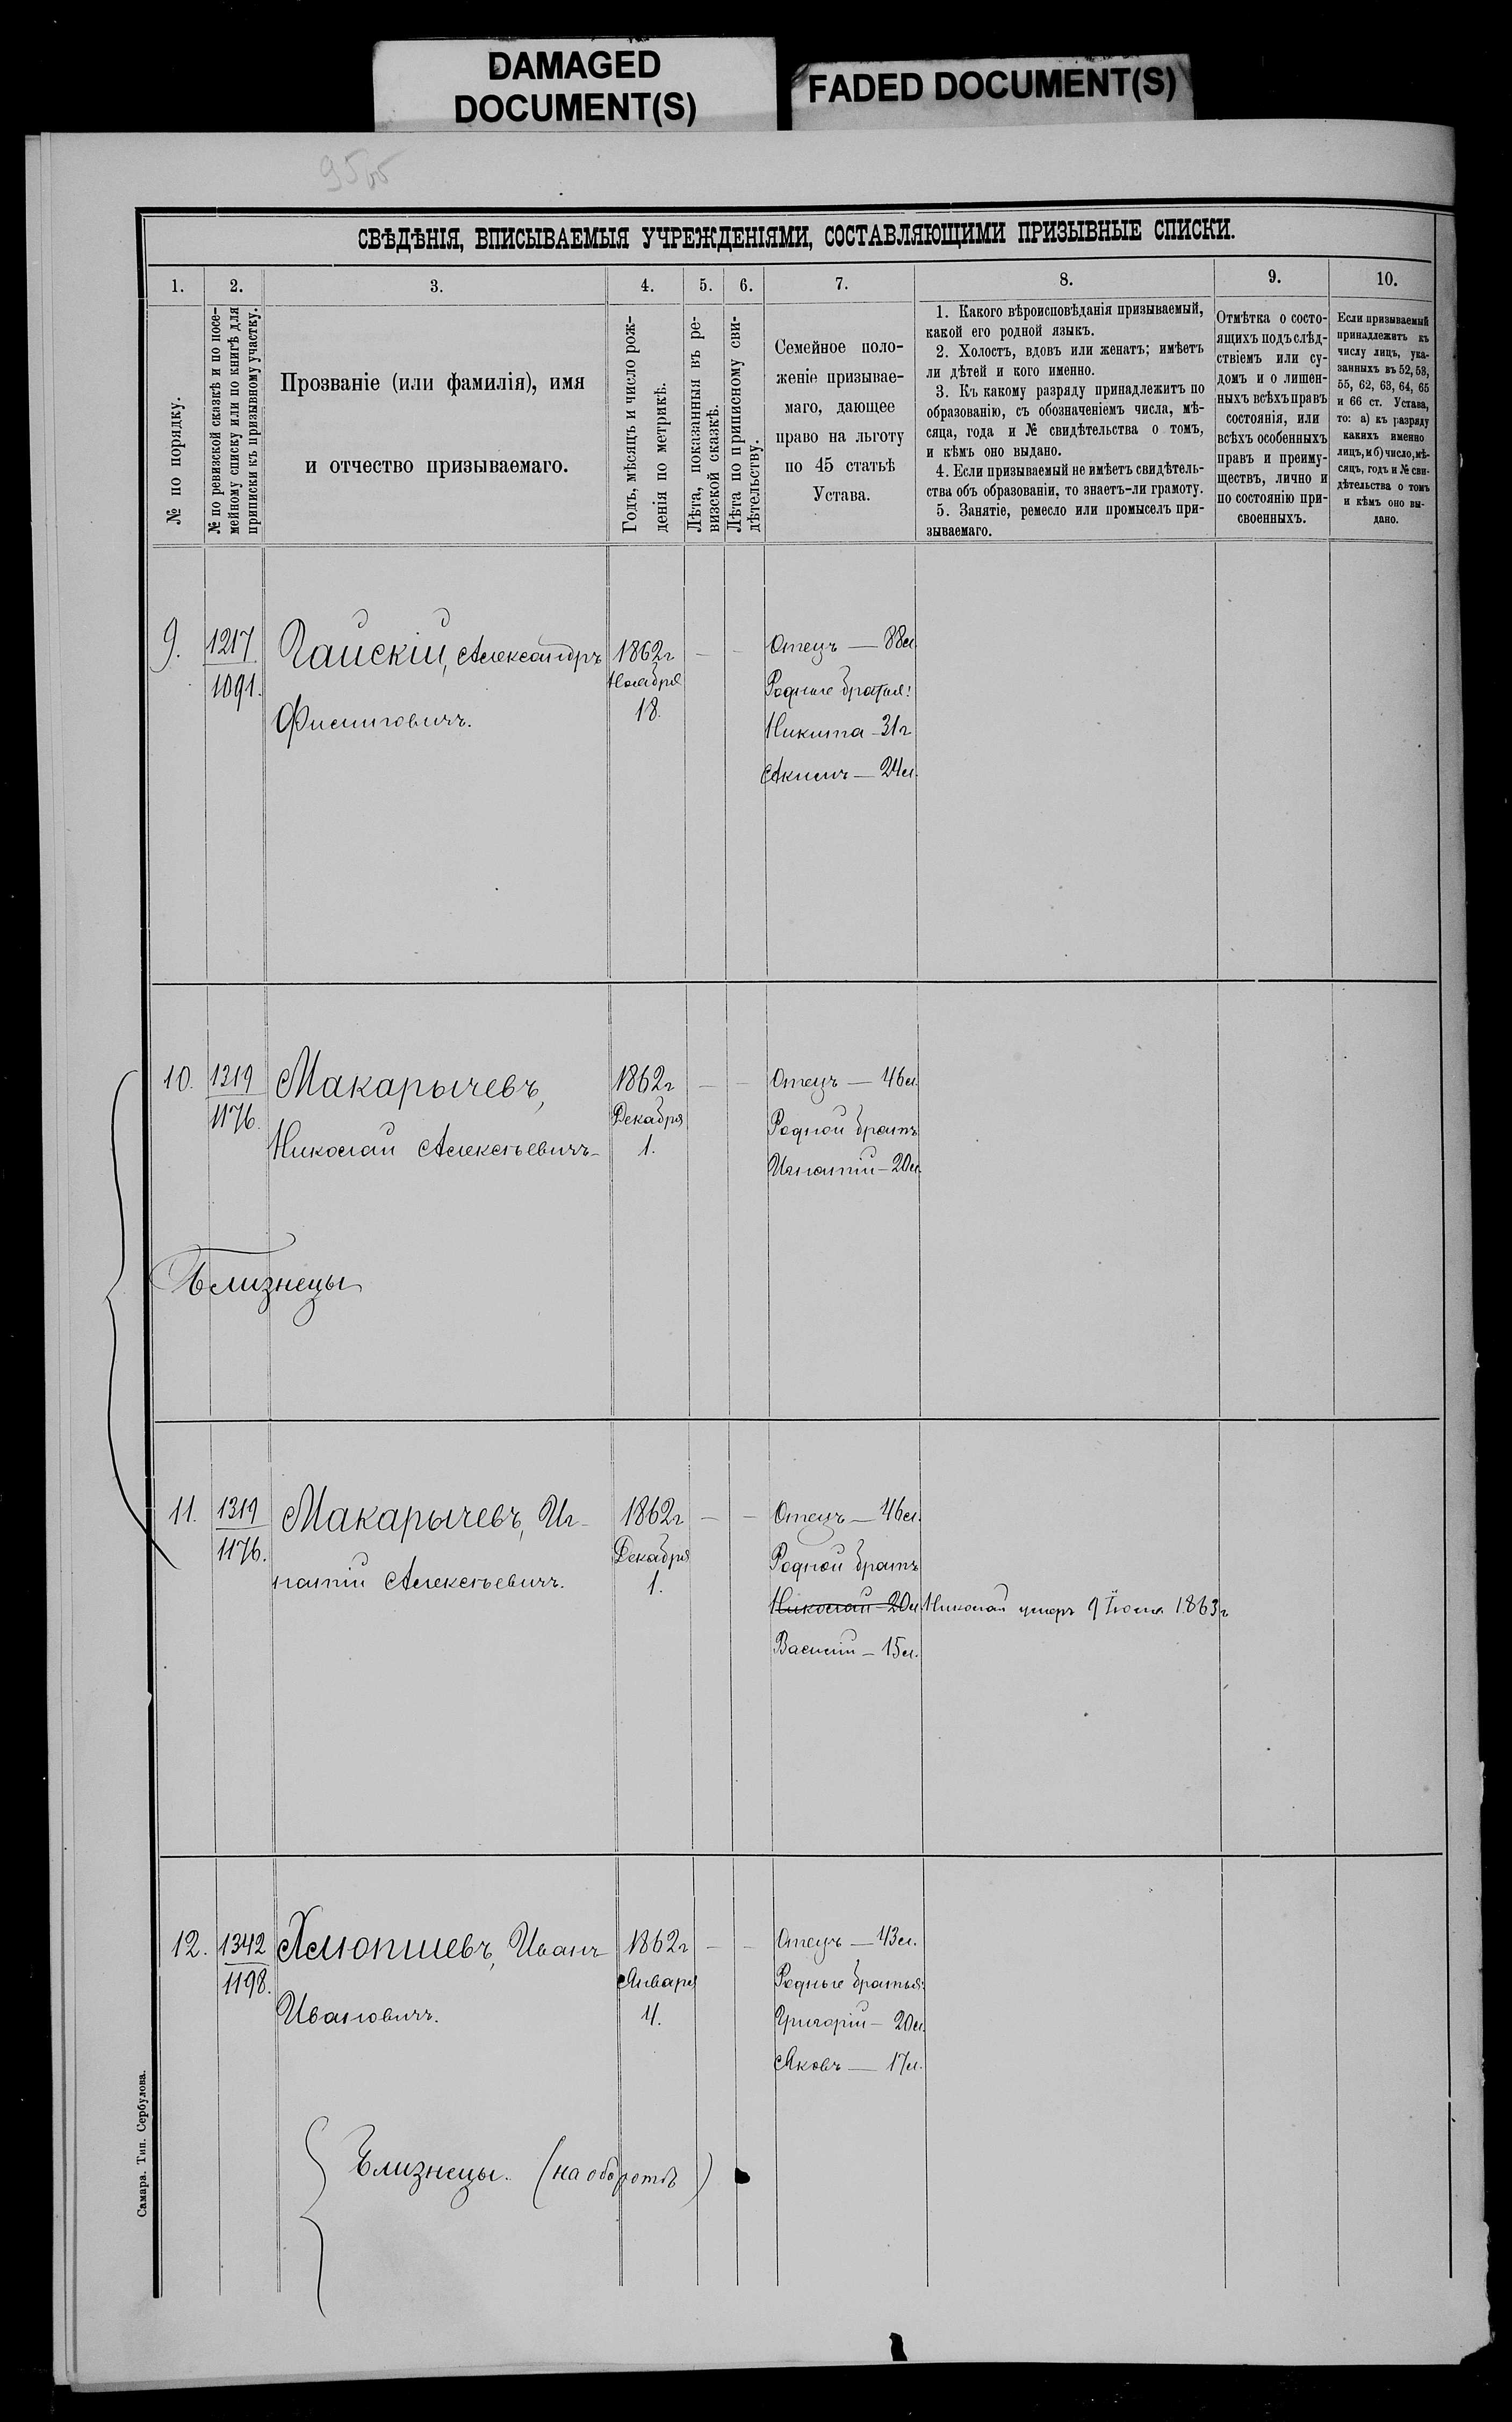 DAMAGED
DOCUMENT(S)
FADED DOCUMENT(S)
СВѢДѢНІЯ, ВПИСЫВАЕМЫЯ УЧРЕЖДЕНІЯМИ, СОСТАВЛЯЮЩИМИ ПРИЗЫВНЫЕ СПИСКИ.
1.
2.
3.
4.
5.
6.
7.
8.
9.
10.
№ по порядку.
№ по ревизской сказкѣ и по посе-
мейному списку или по книгѣ для
приписки къ призывному участку.
Прозваніе (или фамилія), имя
и отчество призываемаго.
Годъ, мѣсяцъ и число рож-
денія по метрикѣ.
Лѣта, показанныя въ ре-
визской сказкѣ.
Лѣта по приписному сви-
дѣтельству.
Семейное поло-
женіе призывае-
маго, дающее
право на льготу
по 45 статьѣ
Устава.
1. Какого вѣроисповѣданія призываемый,
какой его родной языкъ.
2. Холостъ, вдовъ или женатъ; имѣетъ
ли дѣтей и кого именно.
3. Къ какому разряду принадлежитъ по
образованію, съ обозначеніемъ числа, мѣ-
сяца, года и № свидѣтельства о томъ,
и кѣмъ оно выдано.
4. Если призываемый не имѣетъ свидѣтель-
ства объ образованіи, то знаетъ-ли грамоту.
5. Занятіе, ремесло или промыселъ при-
зываемаго.
Отмѣтка о состо-
ящихъ подъ слѣд-
ствіемъ или су-
домъ и о лишен-
ныхъ всѣхъ правъ
состоянія, или
всѣхъ особенныхъ
правъ и преиму-
ществъ, лично и
по состоянію при-
своенныхъ.
Если призываемый
принадлежитъ къ
числу лицъ, ука-
занныхъ въ 52, 53,
55, 62, 63, 64, 65
и 66 ст. Устава,
то: а) къ разряду
какихъ именно
лицъ, и б) число, мѣ-
сяцъ, годъ и № сви-
дѣтельства о томъ
и кѣмъ оно вы-
дано.
9.
1217
1091.
Чайскій, Александръ
1862г
Ноября
18.
Отецъ — 88л
Родные братья:
Никита – 31г
Акимъ — 24л.
10.
1319
1176.
Макарычевъ,
Николай Алексѣевичъ
1862г
Декабря
1.
Отецъ — 46л
Родной братъ
Игнатій – 20л.
Близнецы
11.
1319
1176.
Макарычевъ, Иг-
натій Алексѣевичъ.
1862г
Декабря
1.
Отецъ — 46л.
Родной братъ
Николай – 20л
Николай умеръ 9 Іюля 1863г
Василій – 15л.
12.
1342
1198.
Хлопшевъ, Иванъ
Ивановичъ.
1862г
Января
4.
Отецъ — 43л.
Родные братья:
Григорій – 20л.
Яковъ — 17л.
Близнецы. (на оборотѣ)
Самара. Тип. Сербулова.